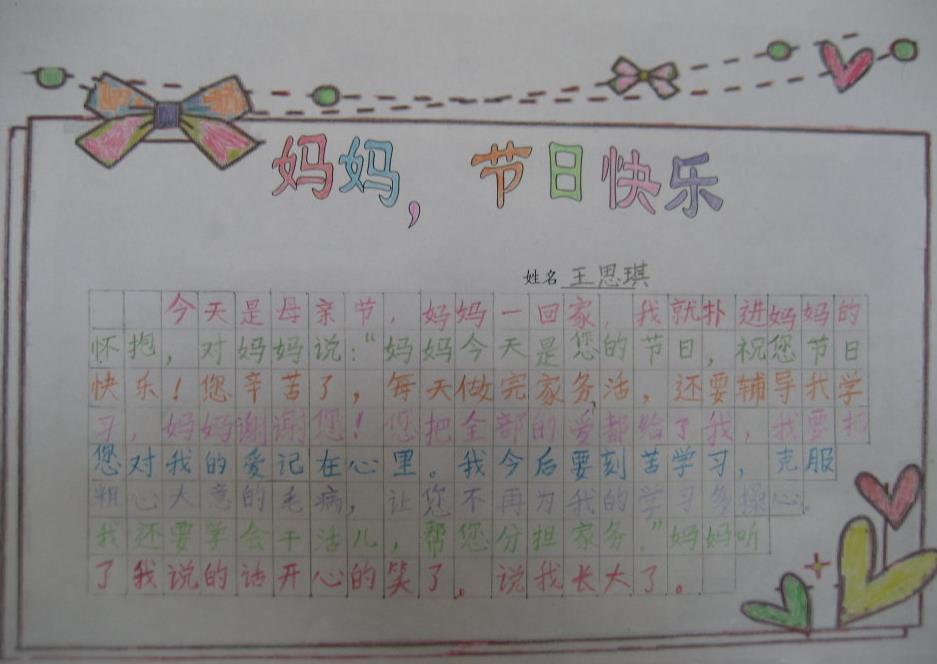 妈妈，节日快乐
姓名 王思琪
今天是母亲节，妈妈一回家，我就扑进妈妈的
怀抱，对妈妈说：“妈妈今天是您的节日，祝您节日
快乐！您辛苦了，每天做完家务活，还要辅导我学
习，妈妈谢谢您！您把全部的爱都给了我，我要把
您对我的爱记在心里。我今后要刻苦学习，克服
粗心大意的毛病，让您不再为我的学习多操心。
我还要学会干活儿，帮您分担家务。”妈妈听
了我说的话开心的笑了。说我长大了。